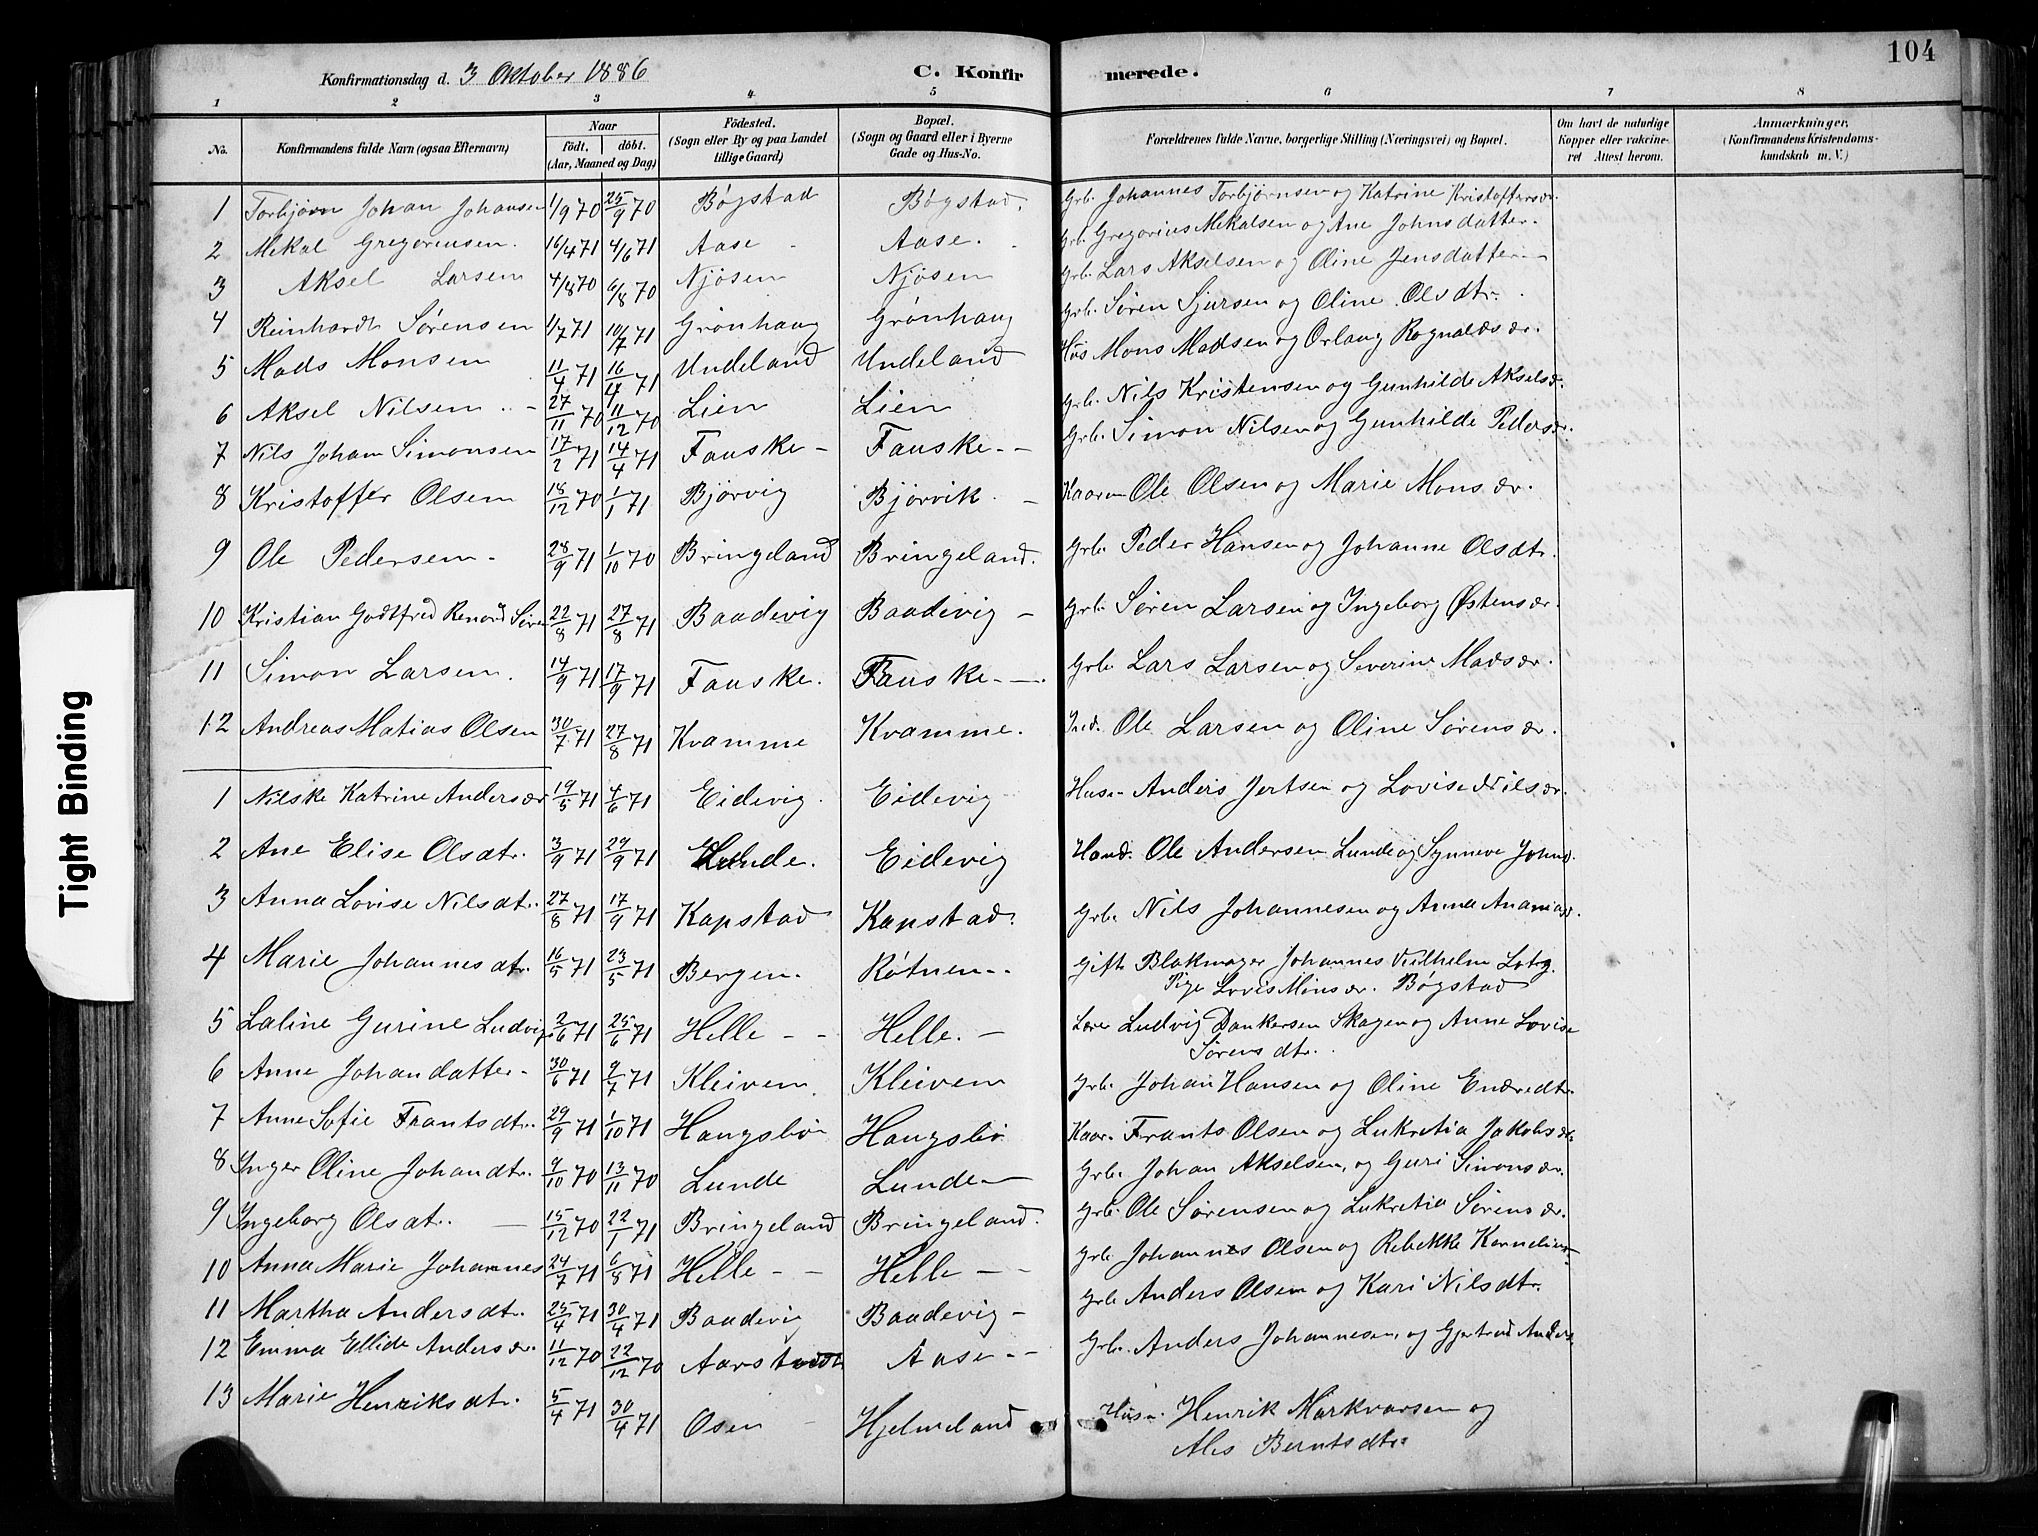 104
Konfirmationsdag d. 3 Oktober 1886 C. Konfirmerede.
1 2 3 4 5 6 7 8
No. Konfirmandens fulde Navn (ogsaa Efternavn) Naar födt. döbt. (Aar, Maaned og Dag) Födested. (Sogn eller By og paa Landet tillige Gaard) Bopæl. (Sogn og Gaard eller i Byerne Gade og Hus-No. Forældrenes fulde Navne, borgerlige Stilling (Næringsvei) og Bopæl. Om havt de naturlige Kopper eller vakcineret Attest herom. Anmærkninger, (Konfirmandens Kristendomskundskab m. V.)
1 Torbjørn Johan Johansen 1/9 70 25/9 70 Bøgstad Bøgstad. Grb. Johannes Torbjørnsen og Katrine Kristoffersdr.
2 Mekal Gregoriusen. 16/4 71 4/6 71 Aase Aase. Grb. Gregorius Mekalsen og Ane Johnsdatter
3 Aksel Larsen 4/8 70 6/8 70 Njøsen Njøsen Grb. Lars Akselsen og Oline Jensdatter
4 Reinhardt Sørensen 1/7 71 10/7 71 Grønhaug Grønhaug Grb. Søren Sjursen og Oline Olsdtr.
5 Mads Monsen 11/4 71 16/4 71 Undeland Undeland Hus Mons Madsen og Orlaug Rognaldsdr.
6 Aksel Nilsen 27/11 70 11/12 70 Lien Lien Grb. Nils Kristensen og Gunhilde Akselsd.
7 Nils Johan Simonsen 17/2 71 14/4 71 Fauske Fauske Grb. Simon Nilsen og Gunhilde Pedersdr.
8 Kristoffer Olsen 18/12 70 1/1 71 Bjørvig Bjørvik Kaarm Ole Olsen og Marie Monsdr.
9 Ole Pedersen 28/9 71 1/10 70 Bringeland Bringeland. Grb. Peder Hansen og Johanne Olsdtr.
10 Kristian Godtfred Renord Søren 22/8 71 27/8 71 Baadevig Baadevig Grb. Søren Larsen og Ingeborg Østensdr.
11 Simon Larsen. 14/9 71 17/9 71 Fauske. Fauske Grb. Lars Larsen og Severine Madsdr.
12 Andreas Matias Olsen 30/7 71 27/8 71 Kvamme Kvamme. Ind. Ole Larsen og Oline Sørensdr.
1 Nilske Katrine Andersdr 19/5 71 4/6 71 Eidevig. Eidevig Husm Anders Jertsen og Lovise Nilsdr.
2 Ane Elise Olsdtr. 3/9 71 24/9 71 Lunde. Eidevig Hand. Ole Andersen Lunde og Synneve Johnsd.
3 Anna Lovise Nilsdtr. 27/8 71 17/9 71 Kapstad Kapstad. Grb. Nils Johannesen og Anna Ananiasd.
4 Marie Johannesdtr. 16/5 71 23/5 71 Bergen. Røtnen Gift Blokmager Johannes Vilhelm og
Pige Lovis Monsdr. Bøgstad
5 Laline Gurine Ludvigs 2/6 71 25/6 71 Helle Helle. Lærer Ludvig Dankersen Skagen og Anne Lovise
Sørensdtr.
6 Anne Johandatter 30/6 71 9/7 71 Kleiven Kleiven Grb. Johan Hansen og Oline Endredtr.
7 Anne Sofie Frantsdtr. 29/9 71 1/10 71 Haugsbø Haugsbø Kaar. Frants Olsen og Lukretia Jakobsdr.
8 Inger Oline Johandtr. 9/10 70 13/11 70 Lunde Lunde Grb. Johan Akselsen, og Guri Simonsdr.
9 Ingeborg Olsdtr. 15/12 70 22/1 71 Bringeland Bringeland. Grb. Ole Sørensen og Lukretia Sørensdr.
10 Anna Marie Johannes 24/7 71 6/8 71 Helle Helle Grb Johannes Olsen og Rebekke Kornelius
11 Martha Andersdtr. 25/4 71 30/4 71 Baadevig Baadevig Grb Anders Olsen og Kari Nilsdtr.
12 Emma Ellide Andersdr. 11/12 70 22/12 70 Aarstad Aase Grb. Anders Johannesen, og Gjertrud Anders
13 Marie Henriksdtr. 5/4 71 30/4 71 Osen Hjelmeland Husm. Henrik Markvarsen og
Berntsdtr.
Tight Binding